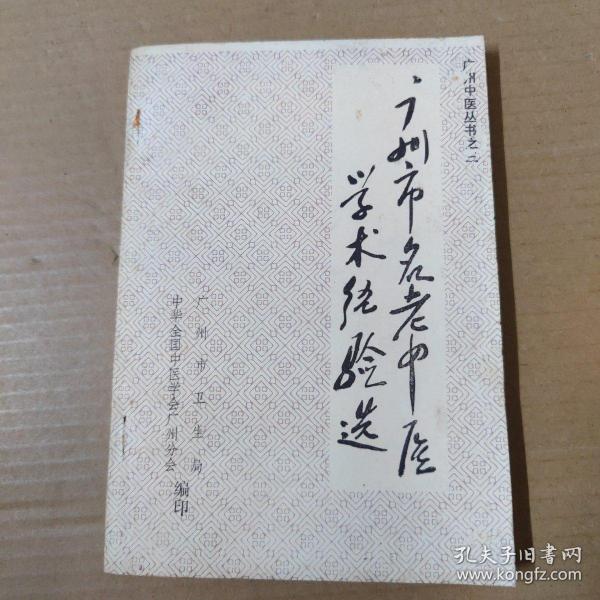 广州中医丛书之二
广州市名老中医
学术经验选
广州市卫生局
中华全国中医学会广州分会
编印
孔夫子旧书网
www.kongfz.com